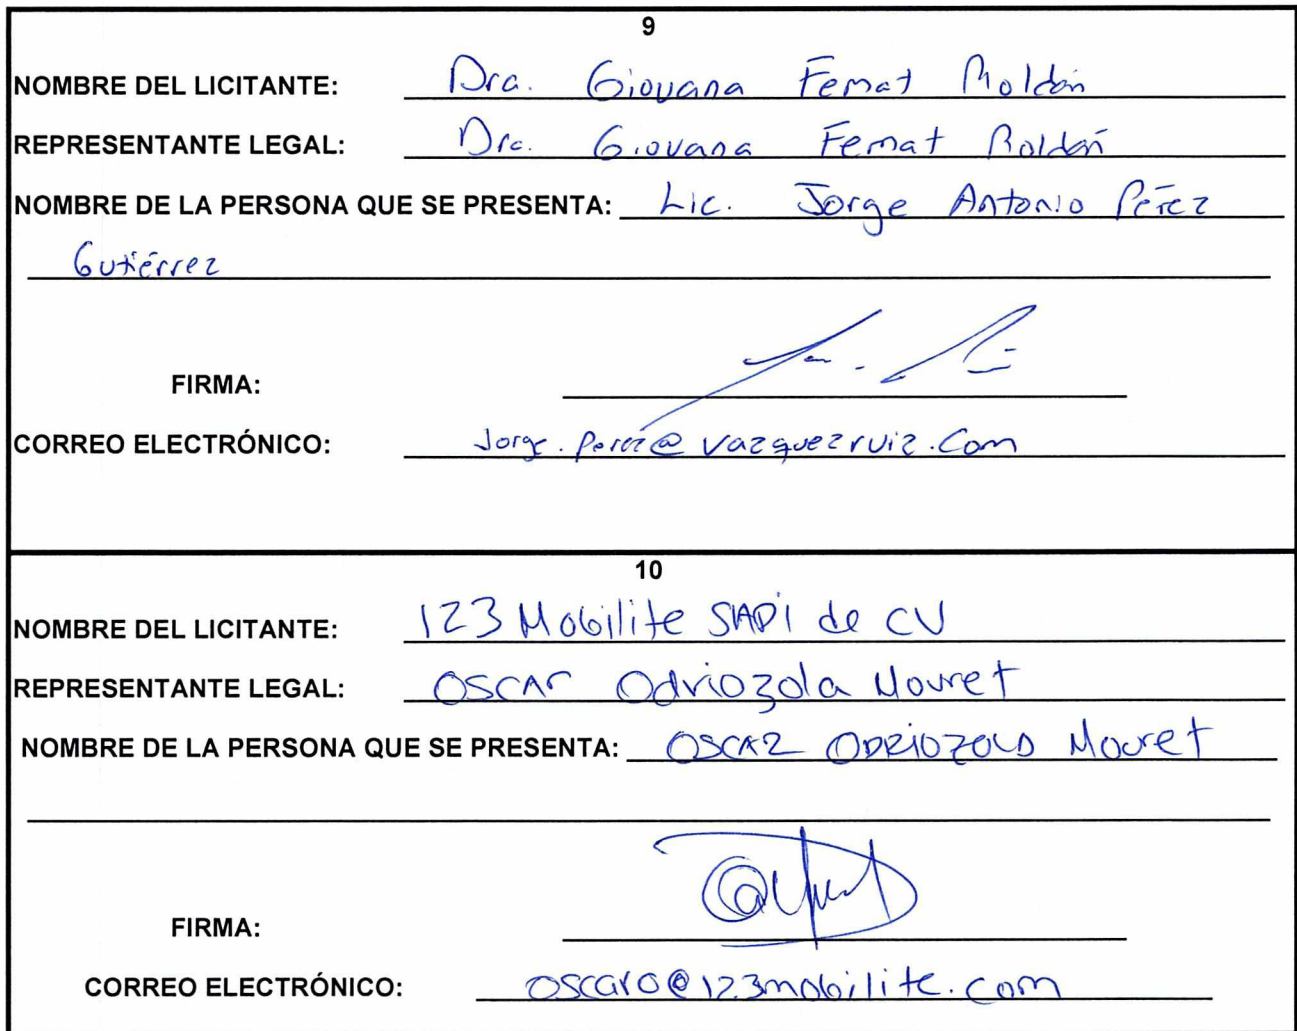 9
NOMBRE DEL LICITANTE: Dra. Giovana Femat Roldán
REPRESENTANTE LEGAL: Dra. Giovana Femat Roldán
NOMBRE DE LA PERSONA QUE SE PRESENTA: Lic. Jorge Antonio Pérez
Gutiérrez
FIRMA:
CORREO ELECTRÓNICO: Jorge.perez@vazquezruiz.com
10
NOMBRE DEL LICITANTE: 123 Mobilite SAPI de CV
REPRESENTANTE LEGAL: OSCAR Odriozola Mouret
NOMBRE DE LA PERSONA QUE SE PRESENTA: OSCAR ODRIOZOLA Mouret
FIRMA:
CORREO ELECTRÓNICO: oscaro@123mobilite.com